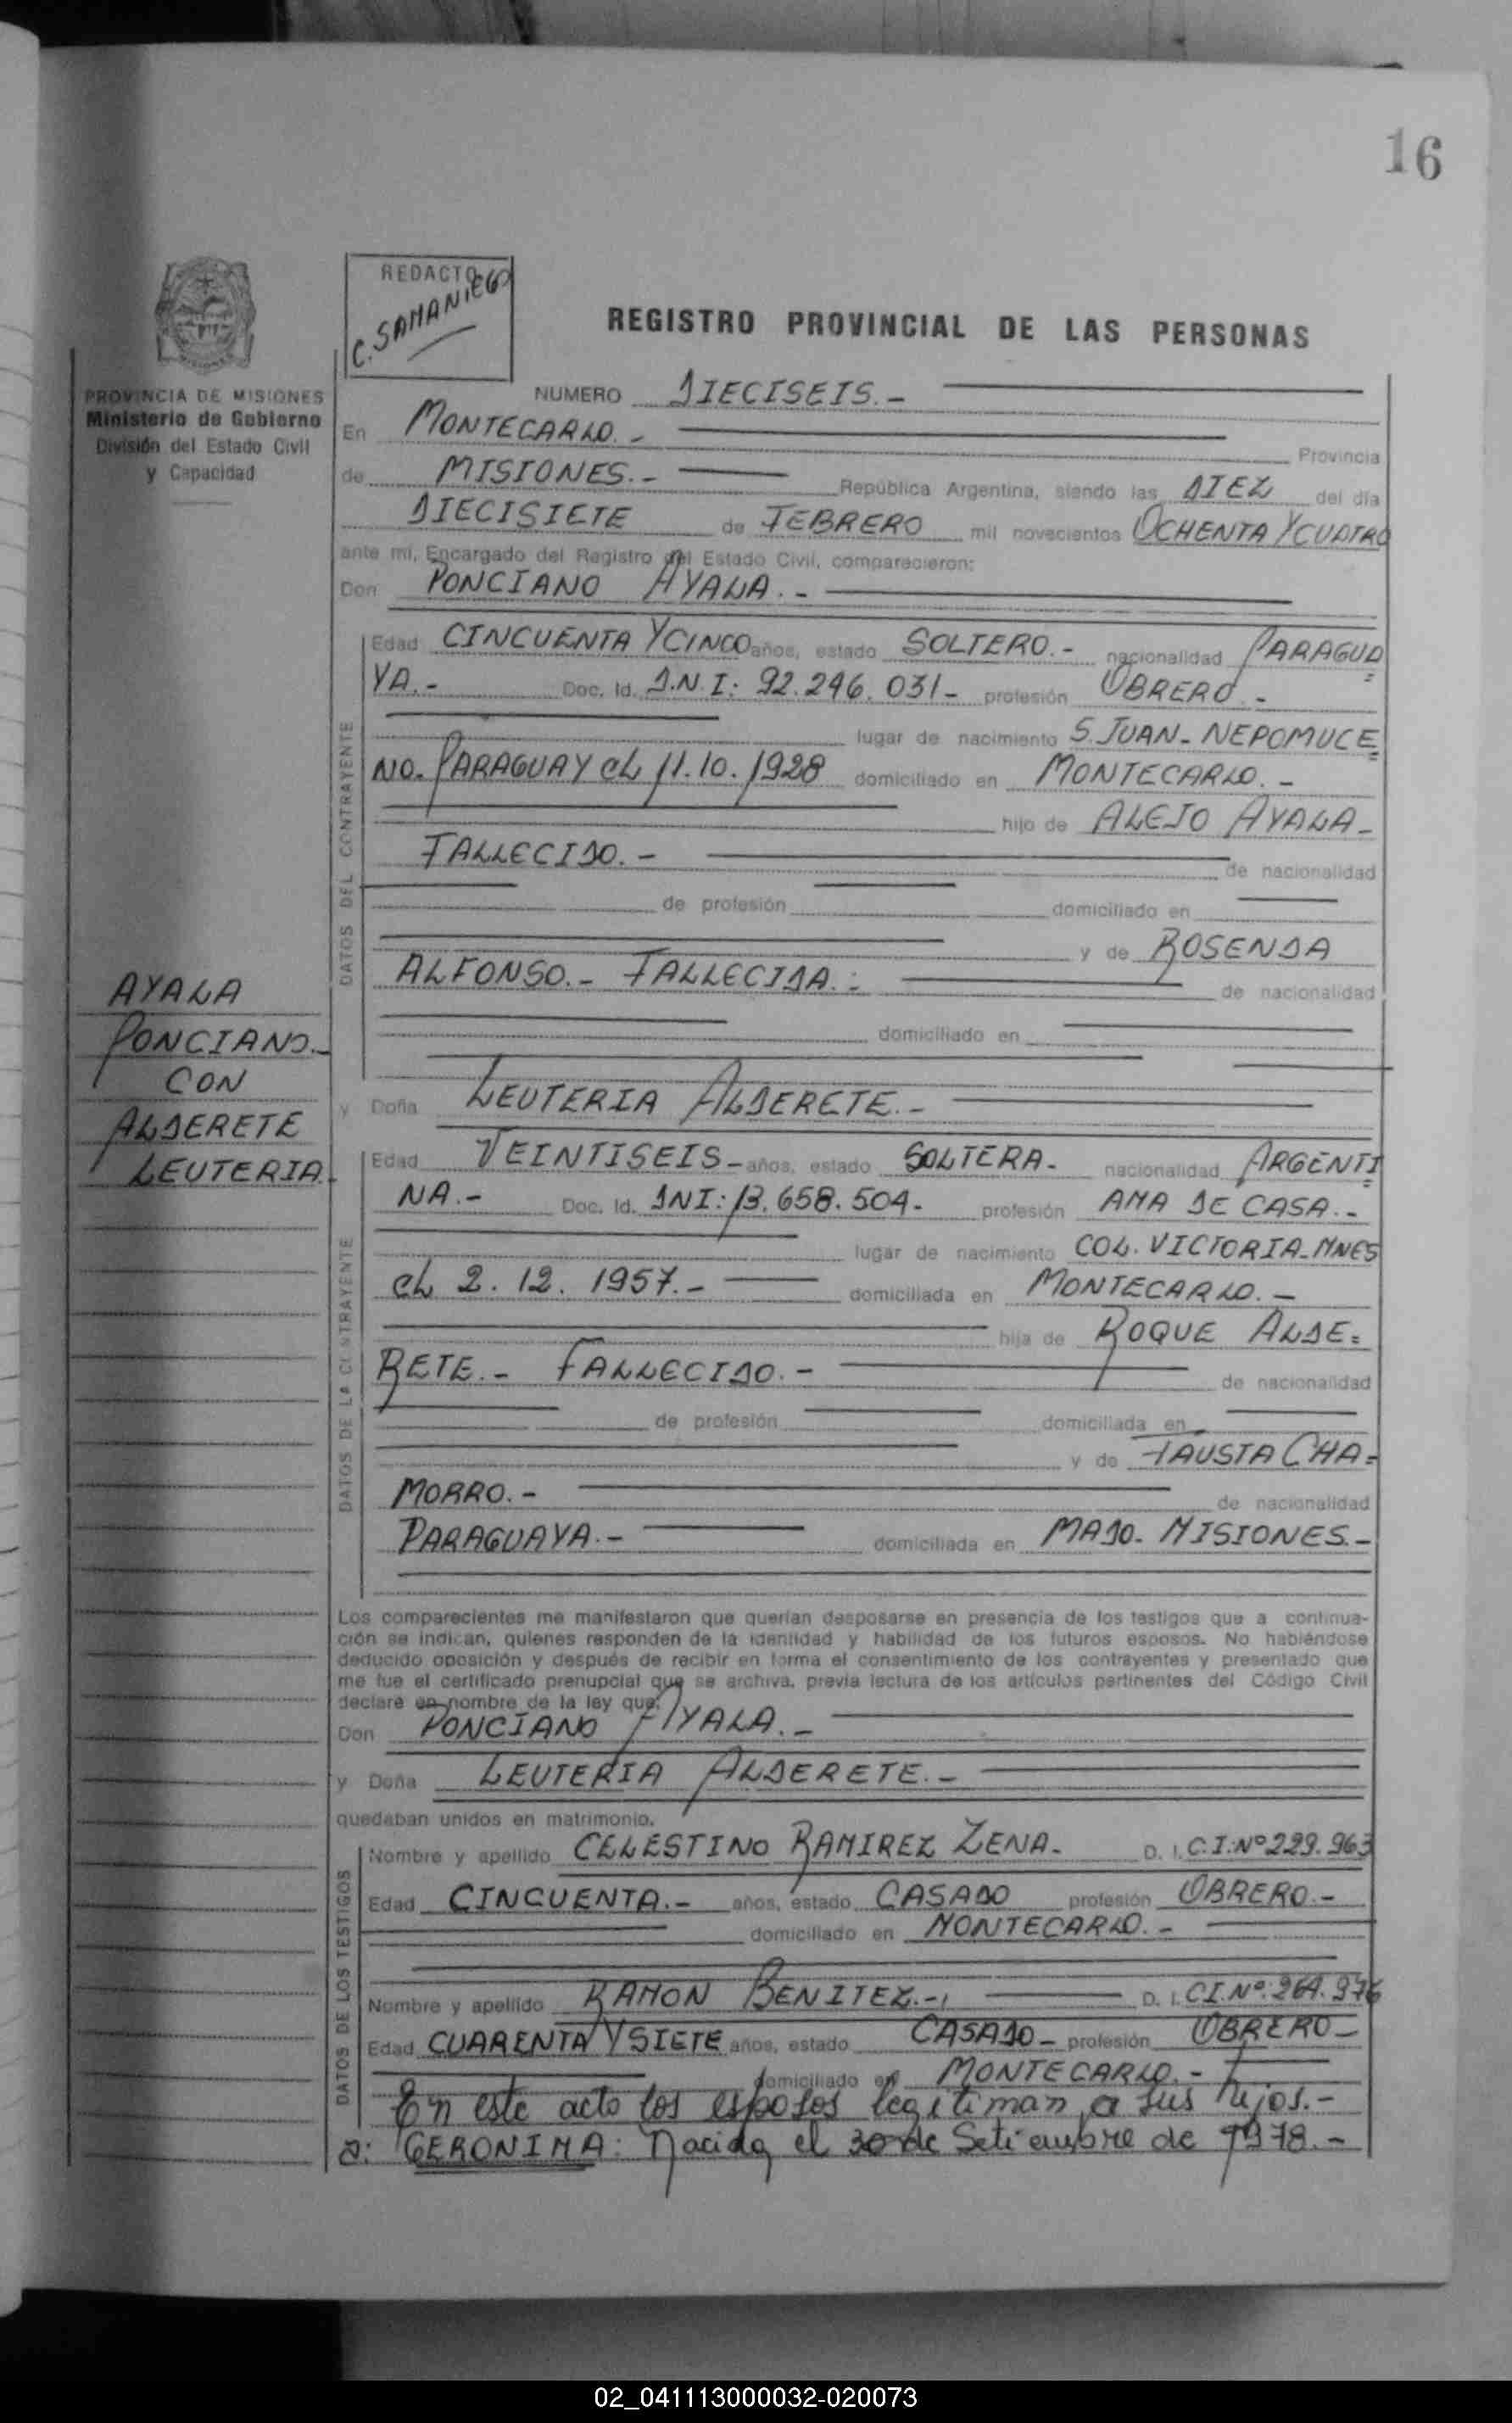 16
REDACTO
C. SAMANIEGO
REGISTRO PROVINCIAL DE LAS PERSONAS
PROVINCIA DE MISIONES
Ministerio de Gobierno
División del Estado Civil
y Capacidad
NUMERO DIECISEIS.-
En MONTECARLO.- Provincia
de MISIONES.- República Argentina, siendo las DIEZ del día
DIECISIETE de FEBRERO mil novecientos OCHENTA Y CUATRO
ante mí, Encargado del Registro del Estado Civil, comparecieron:
Don PONCIANO AYALA.-
Edad CINCUENTA Y CINCO años, estado SOLTERO.- nacionalidad PARAGUA=
YA.- Doc. Id. D.N.I: 92.296.031- profesión OBRERO.-
lugar de nacimiento S. JUAN- NEPOMUCE=
NO. PARAGUAY EL 11.10.1928 domiciliado en MONTECARLO.-
hijo de ALEJO AYALA-
FALLECIDO.- de nacionalidad
de profesión domiciliado en
y de ROSENDA
ALFONSO.- FALLECIDA.- de nacionalidad
domiciliado en
y Doña LEUTERIA ALDERETE.-
Edad VEINTISEIS- años, estado SOLTERA- nacionalidad ARGENTI=
NA.- Doc. Id. DNI: 13.658.504- profesión AMA DE CASA.-
lugar de nacimiento COL. VICTORIA-MNES
EL 2.12.1957.- domiciliada en MONTECARLO.-
hija de ROQUE ALDE=
RETE.- FALLECIDO.- de nacionalidad
de profesión domiciliada en
y de FAUSTA CHA=
MORRO.- de nacionalidad
PARAGUAYA.- domiciliada en MADO- MISIONES.-
DATOS DEL CONTRAYENTE
DATOS DE LA CONTRAYENTE
AYALA
PONCIANO.-
CON
ALDERETE
LEUTERIA.
Los comparecientes me manifestaron que querían desposarse en presencia de los testigos que a continua-
ción se indican, quienes responden de la identidad y habilidad de los futuros esposos. No habiéndose
deducido oposición y después de recibir en forma el consentimiento de los contrayentes y presentado que
me fue el certificado prenupcial que se archiva, previa lectura de los artículos pertinentes del Código Civil
declaré en nombre de la ley que:
Don PONCIANO AYALA.-
y Doña LEUTERIA ALDERETE.-
quedaban unidos en matrimonio.
Nombre y apellido CELESTINO RAMIREZ ZENA- D. I. C.I:Nº 229.963
Edad CINCUENTA.- años, estado CASADO profesión OBRERO.-
domiciliado en MONTECARLO.-
Nombre y apellido RAMON BENITEZ.- D. I. C.I.Nº:264.976
Edad CUARENTA Y SIETE años, estado CASADO- profesión OBRERO-
domiciliado en MONTECARLO.-
DATOS DE LOS TESTIGOS
En este acto los esposos legitiman a sus hijos.-
a: GERONIMA: Nacida el 30 de Setiembre de 1978.-
02_041113000032-020073